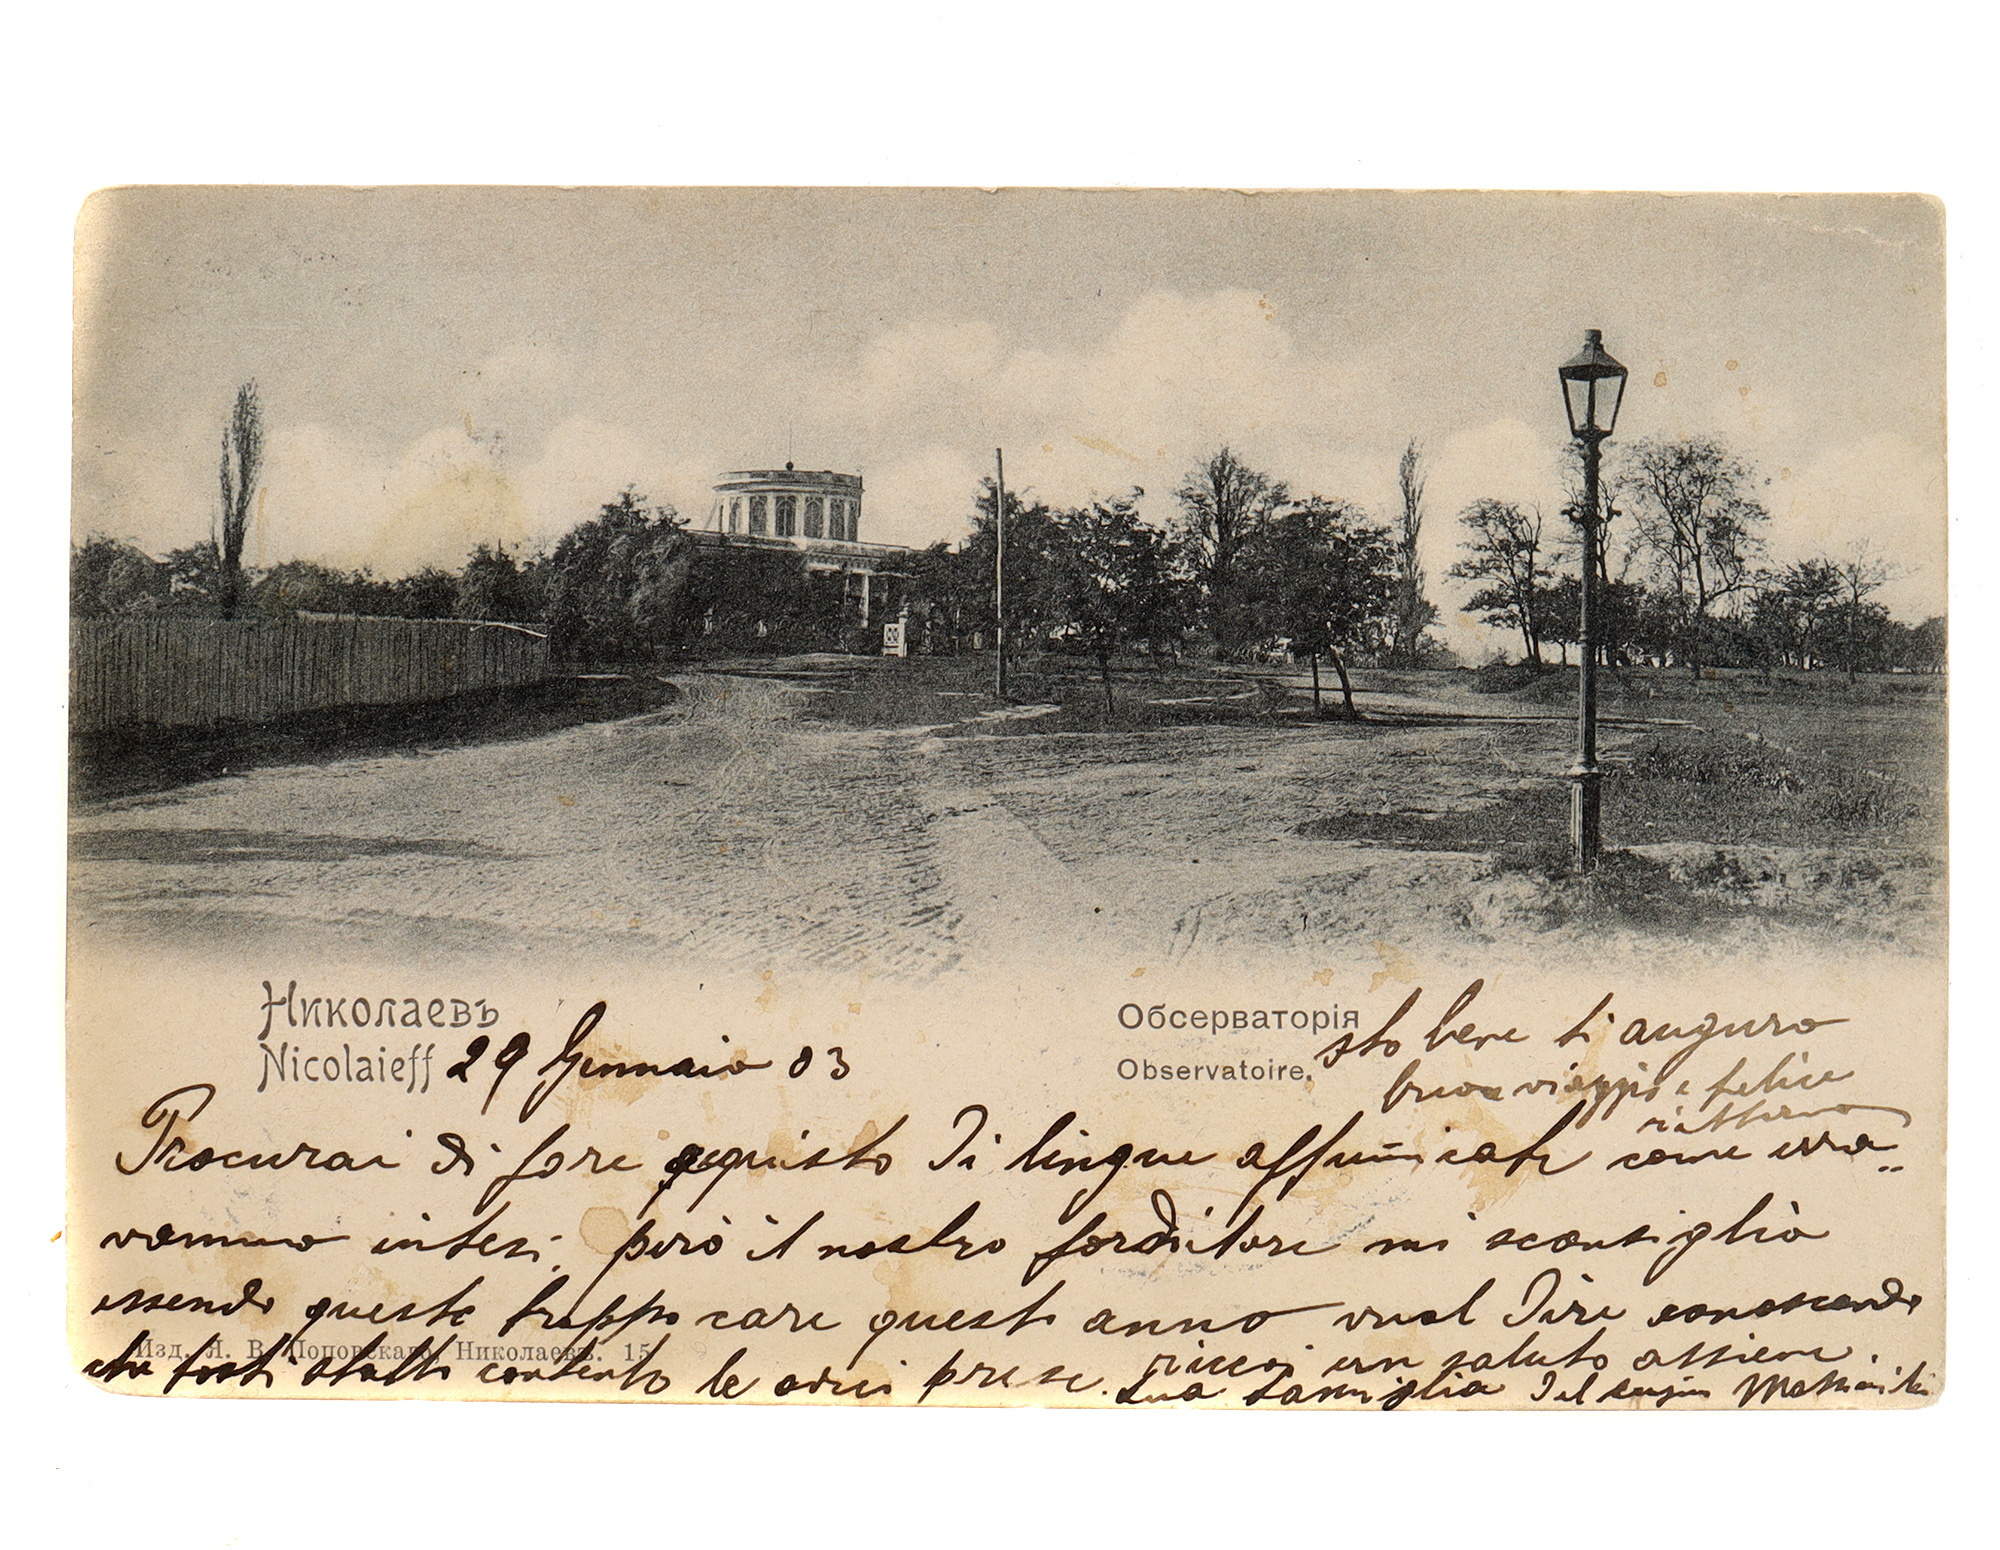 Николаевъ
Nicolaieff
Обсерваторія
Observatoire.
29 Gennaio 03
sto bene ti auguro
buon viaggio e felice
ritorno
Procurai di fare acquisto di lingue affumicate come era
vammo intesi, però il nostro forditore mi sconsigliò
essendo queste troppo care questo anno vual dire conoscendo
che tosti contento le ordi prese. ricevi un saluto assieme
tua famiglia del cugin
Изд. Я. В. Поповскаго, Николаевъ. 15